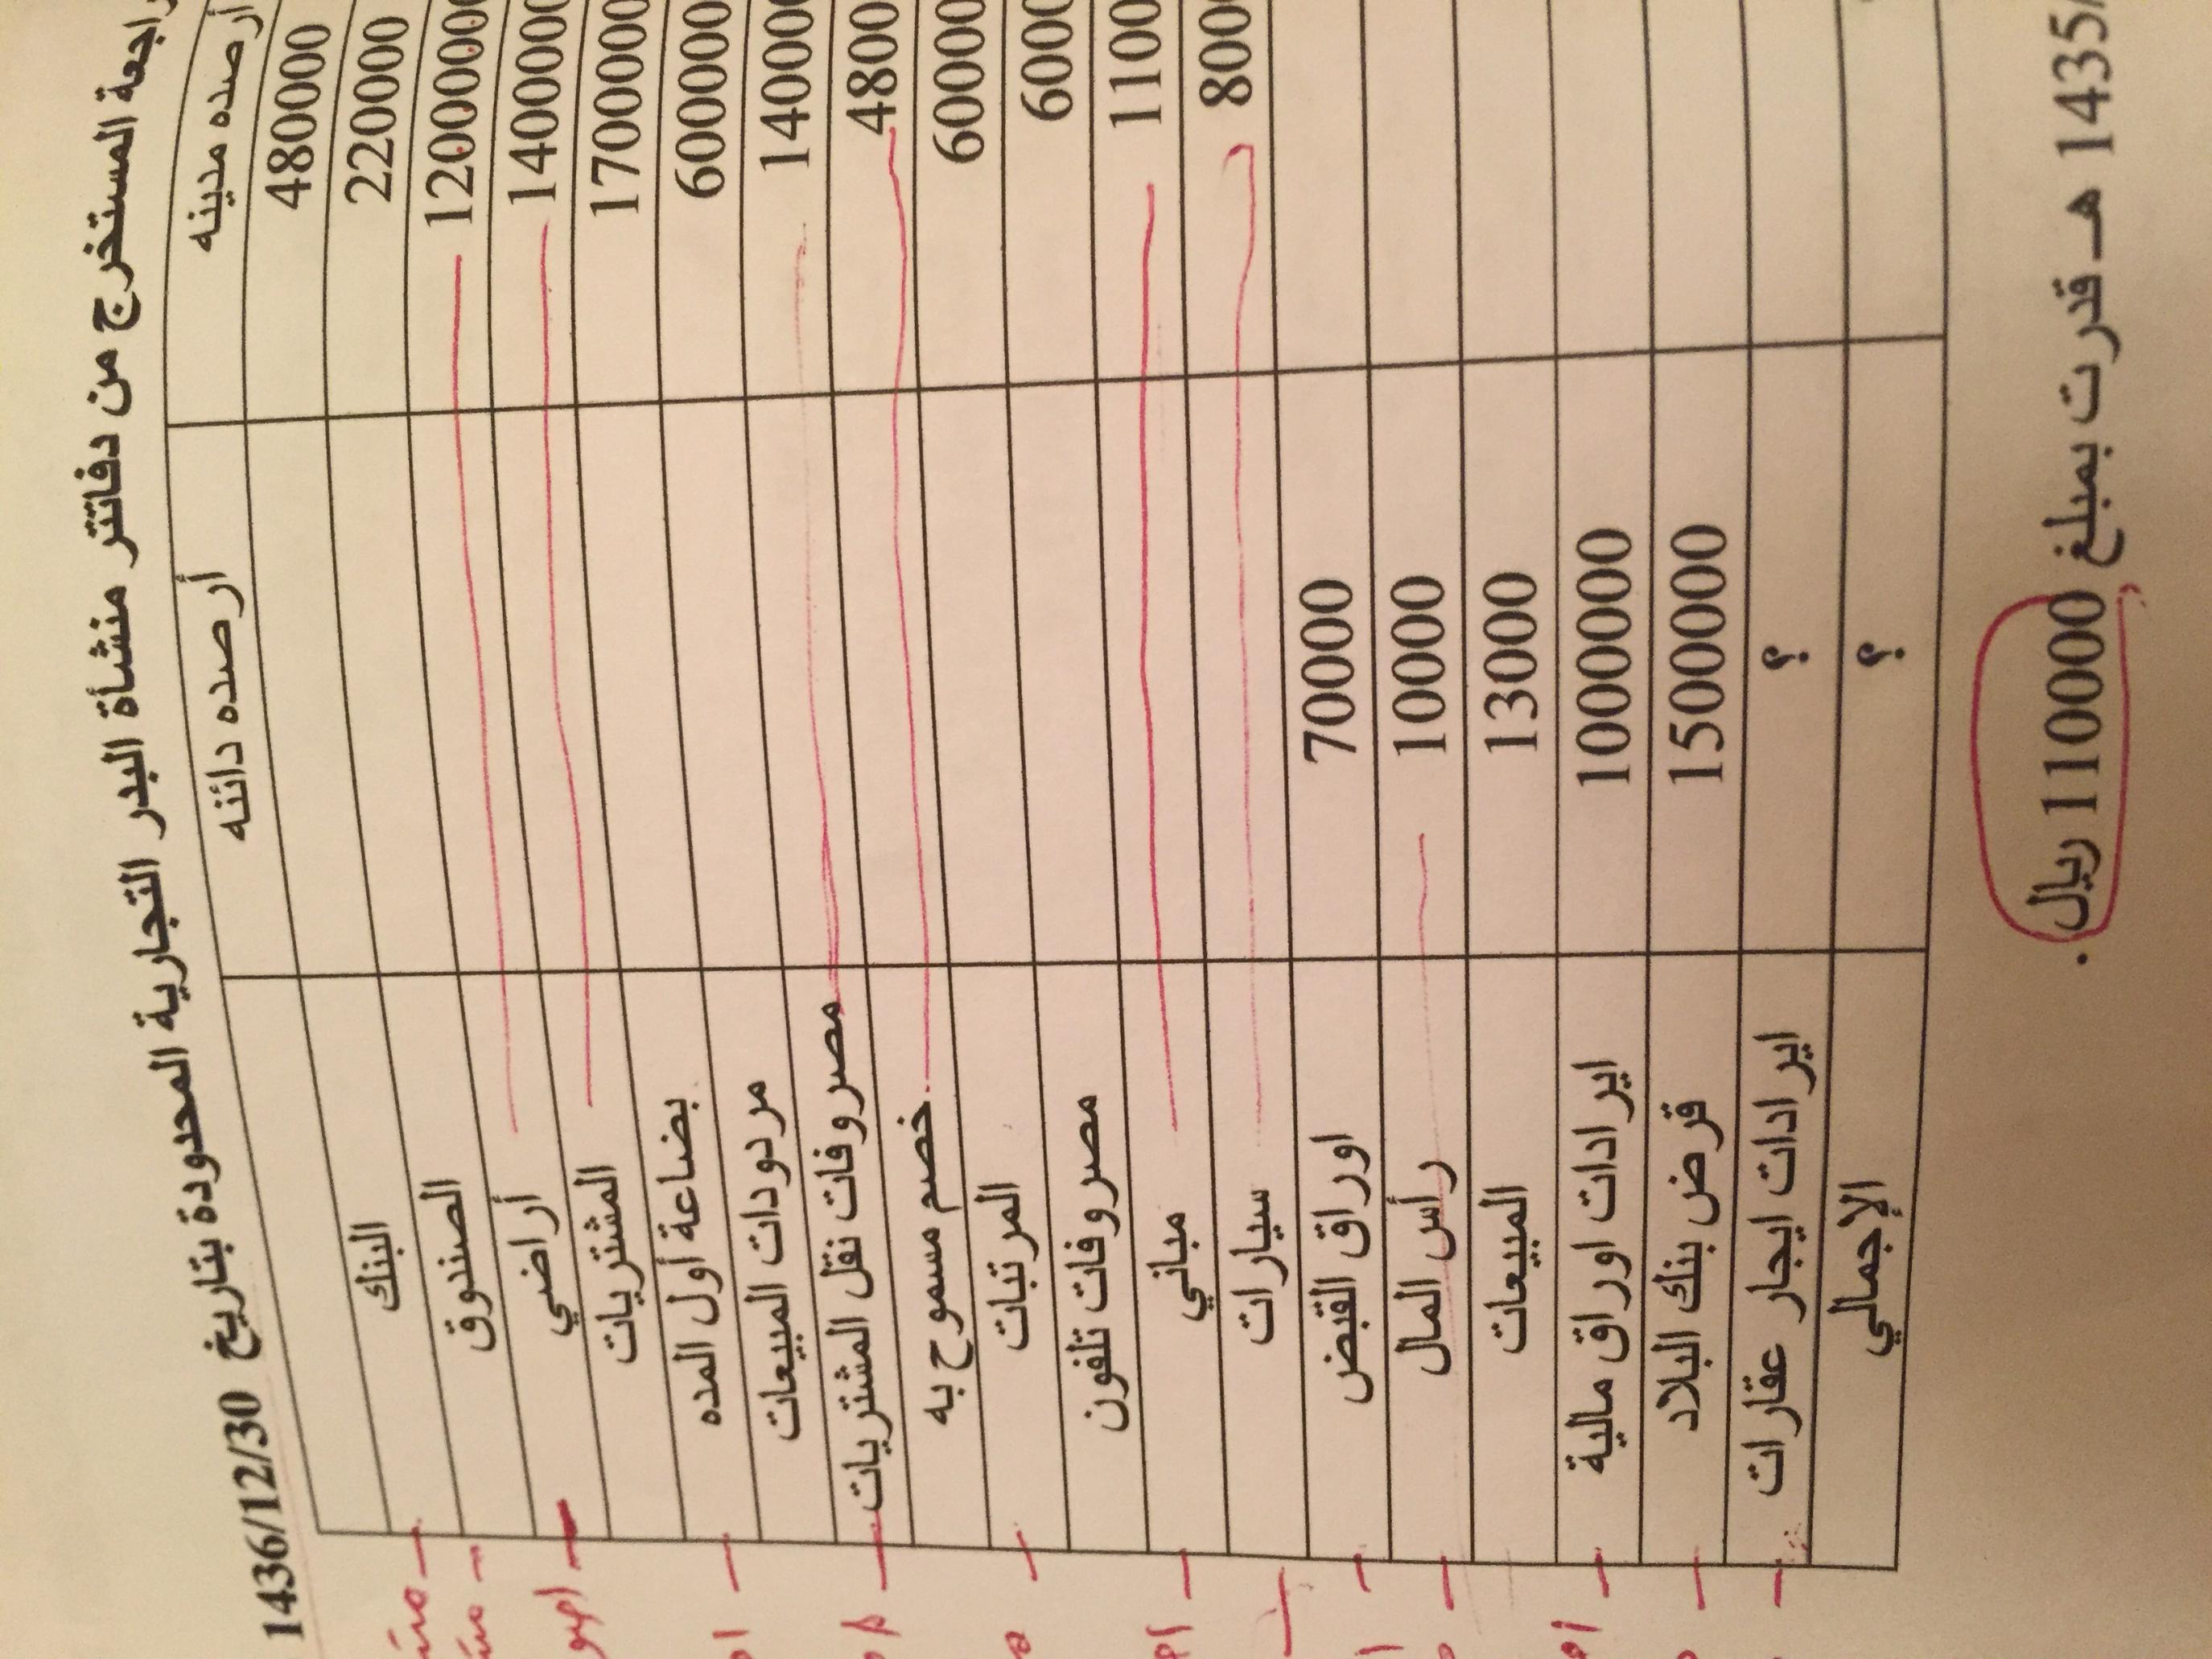 راجعة المستخرج من دفاتر منشأة البدر التجارية المحدودة بتاريخ 1436/12/30
أرصده مدينه أرصده دائنه
480000 البنك
220000 الصندوق
1200000 أراضي
1400000 المشتريات
1700000 بضاعة أول المده
600000 مردودات المبيعات
14000 مصروفات نقل المشتريات
4800 خصم مسموح به
60000 المرتبات
6000 مصروفات تلفون
1100 مباني
8000 سيارات
70000 اوراق القبض
10000 رأس المال
13000 المبيعات
1000000 ايرادات اوراق مالية
1500000 قرض بنك البلاد
؟ ايرادات ايجار عقارات
؟ الإجمالي
1435/ هـ قدرت بمبلغ 110000 ريال.